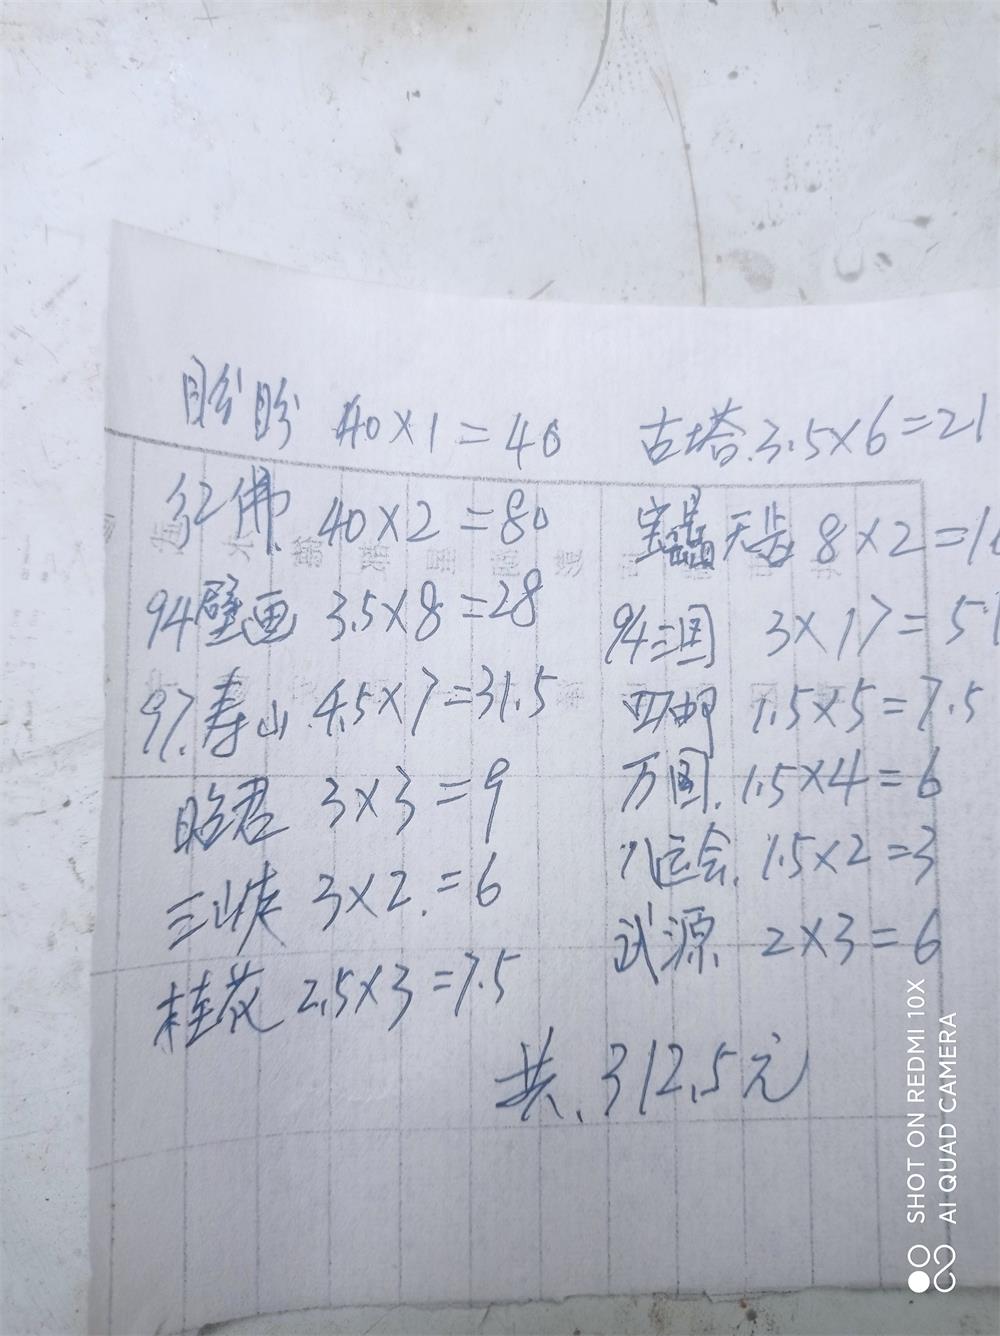 盼盼 40×1=40
红佛 40×2=80
94壁画 3.5×8=28
97.寿山 4.5×7=31.5
昭君 3×3=9
三峡 3×2.=6
桂花 2.5×3=7.5
古塔.3.5×6=21
宝晶天长 8×2=1
94三国 3×17=51
亚邮 1.5×5=7.5
万国.1.5×4=6
八运会.1.5×2=3
武源 2×3=6
共.312.5元
SHOT ON REDMI 10X
AI QUAD CAMERA